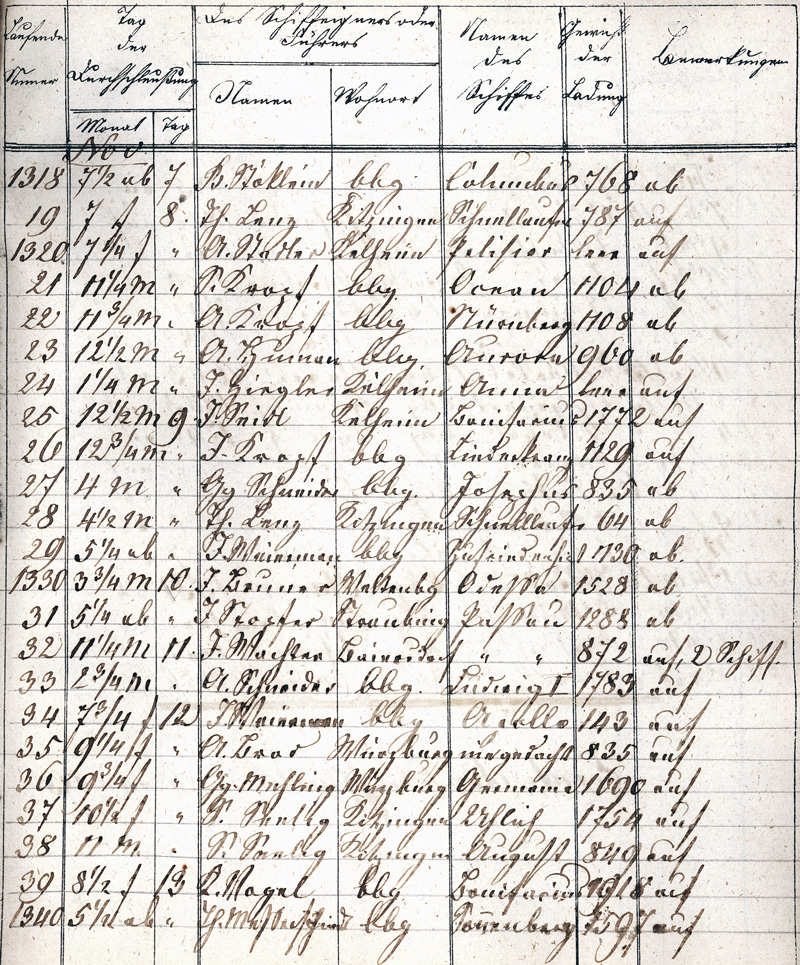 Laufende Numer | Tag der Durchschleußung | Des Schiffeigners oder Führers | Namen des Schiffes | Gewicht der Ladung | Bemerkungen
Monat | Tag | Namen | Wohnort
Nov
1318 7½ ab 7 B. Stöklein bbg Columbus 768 ab
19 7 f 8. Th. Leng Kitzingen Schnellaufer 787 auf
1320 7¼ f " A. Stadler Kelheim leer auf
21 11¼ M " S. Kropf bbg Ocean 1104 ab
22 11¾ M " A. Kropf bbg Nürnberg 1108 ab
23 12½ M " A. bbg Aurora 960 ab
24 1¼ M " J. Ziegler Kelheim Anna leer auf
25 12½ M 9. J. Seidl Kelheim Bonifacius 1772 auf
26 12¾ M " J. Kropf bbg Liederkranz 1129 auf
27 4 M " Gg Schneider bbg. Josephus 835 ab
28 4½ M " Th. Leng Kitzingen Schnelllaufer 64 ab
29 5¼ ab " J. bbg Zufriedenheit 1730 ab.
1330 3¾ M 10. J. Weltenbg Odessa 1528 ab
31 5¼ ab " J. Stopfer Straubing Passau 1288 ab
32 11¼ M 11. J. Wachter Baiersdorf " " 872 auf, 2 Schiff.
33 2¾ M " A. Schneider bbg. Ludwig I 1783 auf
34 7¾ f 12 J. bbg Apollo 143 auf
35 9¼ f " A. Würzburg 835 auf
36 9¾ f " Gg. Mehling Würzburg Germania 1690 auf
37 10½ f " S. Kitzingen 1754 auf
38 11 M " S. Kitzingen August 849 auf
39 8½ f 13 K. Vogel bbg Bonifacius 1618 auf
1340 5½ ab " Th. Messerschmidt bbg auf